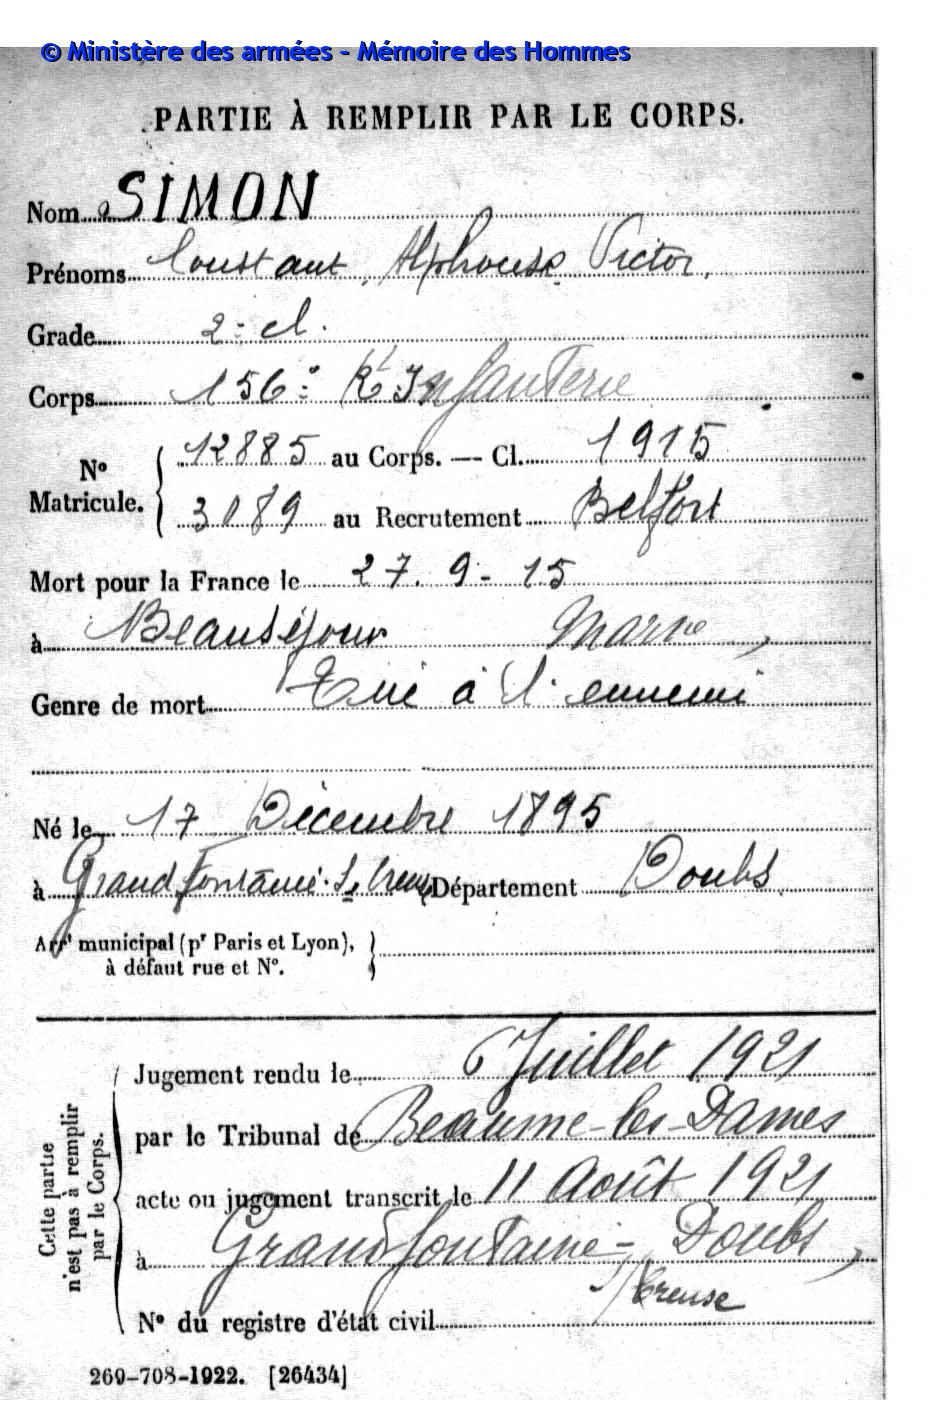 © Ministère des armées - Mémoire des Hommes
PARTIE À REMPLIR PAR LE CORPS.
Nom SIMON
Prénoms Constant, Alphonse Victor,
Grade 2e cl.
Corps 156e Rt Infanterie
No Matricule. 12885 au Corps. — Cl. 1915
3089 au Recrutement Belfort
Mort pour la France le 27. 9 - 15
à Beauséjour Marne,
Genre de mort Tué à l'ennemi
Né le 17 Décembre 1895
à Grand Fontaine. S. Creuse Département Doubs
Arrt municipal (pr Paris et Lyon),
à défaut rue et No.
Cette partie n'est pas à remplir par le Corps.
Jugement rendu le 6 Juillet 1921
par le Tribunal de Beaume-les-Dames
acte ou jugement transcrit le 11 Août 1921
à Grandfontaine - Doubs,
s/Creuse
No du registre d'état civil
269-708-1922. [26434]